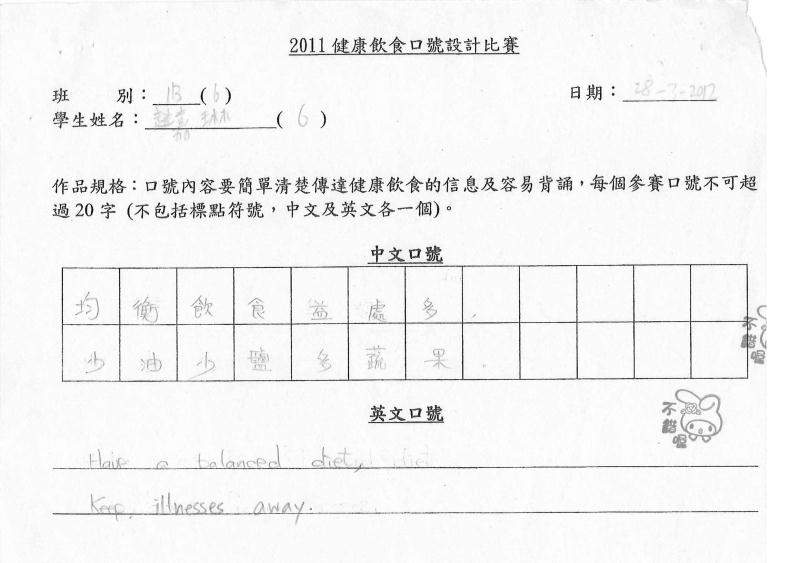 2011 健康飲食口號設計比賽
班 別：1B (6)
日期：28-3-2012
學生姓名： (6)
作品規格：口號內容要簡單清楚傳達健康飲食的信息及容易背誦，每個參賽口號不可超
過 20 字 (不包括標點符號，中文及英文各一個)。
中文口號
均衡飲食益處多，
少油少鹽多蔬果。
不錯喔
英文口號
不錯喔
Have a balanced diet,
Keep illnesses away.